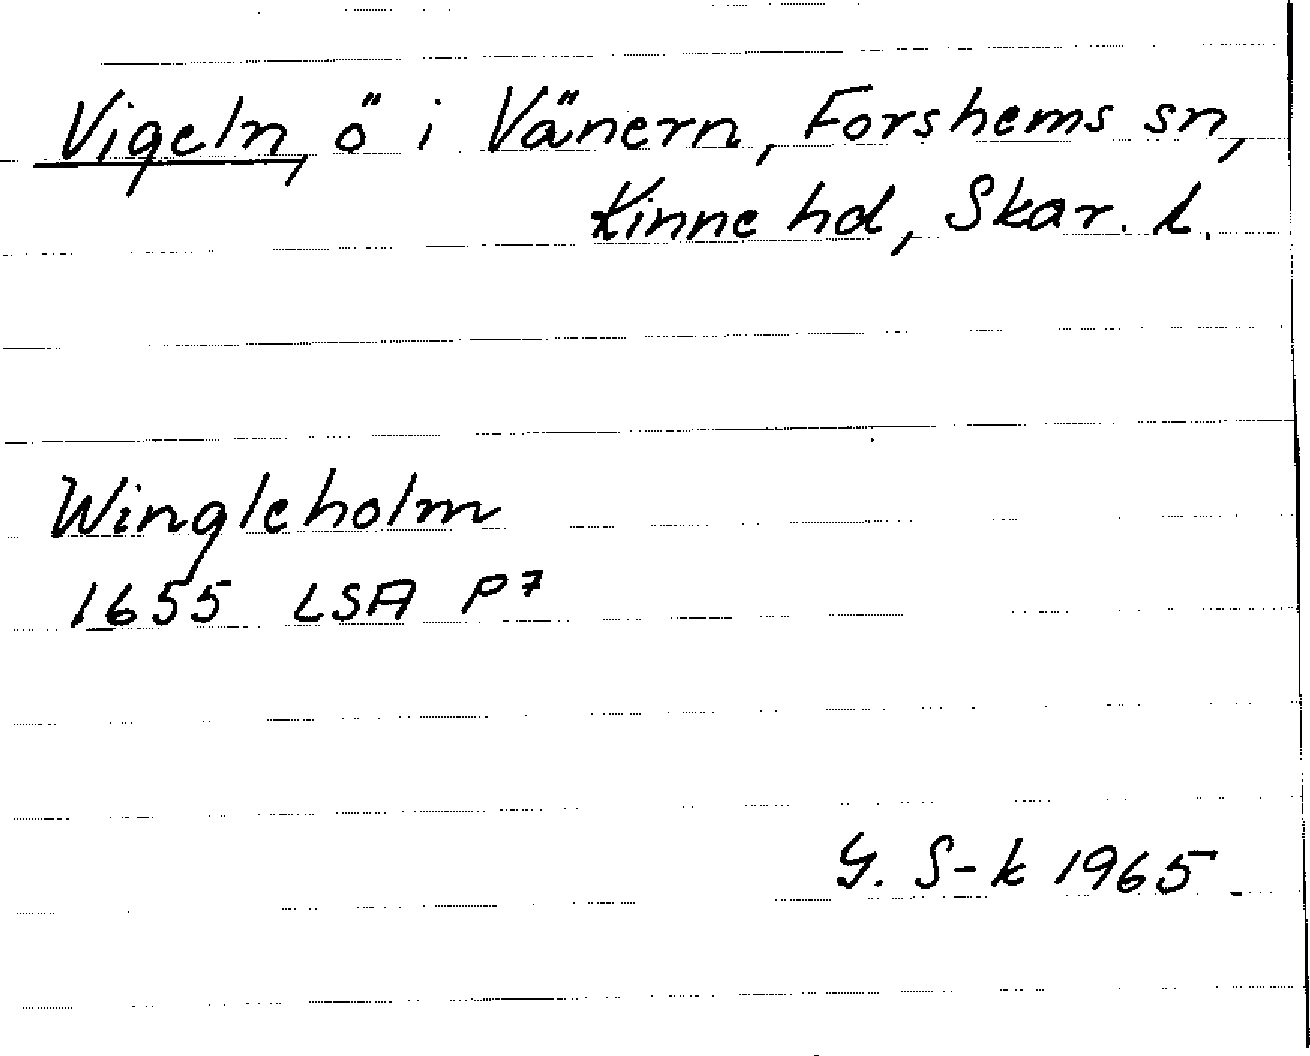 Vigeln, ö i Vänern, Forshems sn,
Kinne hd, Skar. l.
Wingleholm
1655 LSA P7
G. S-k 1965